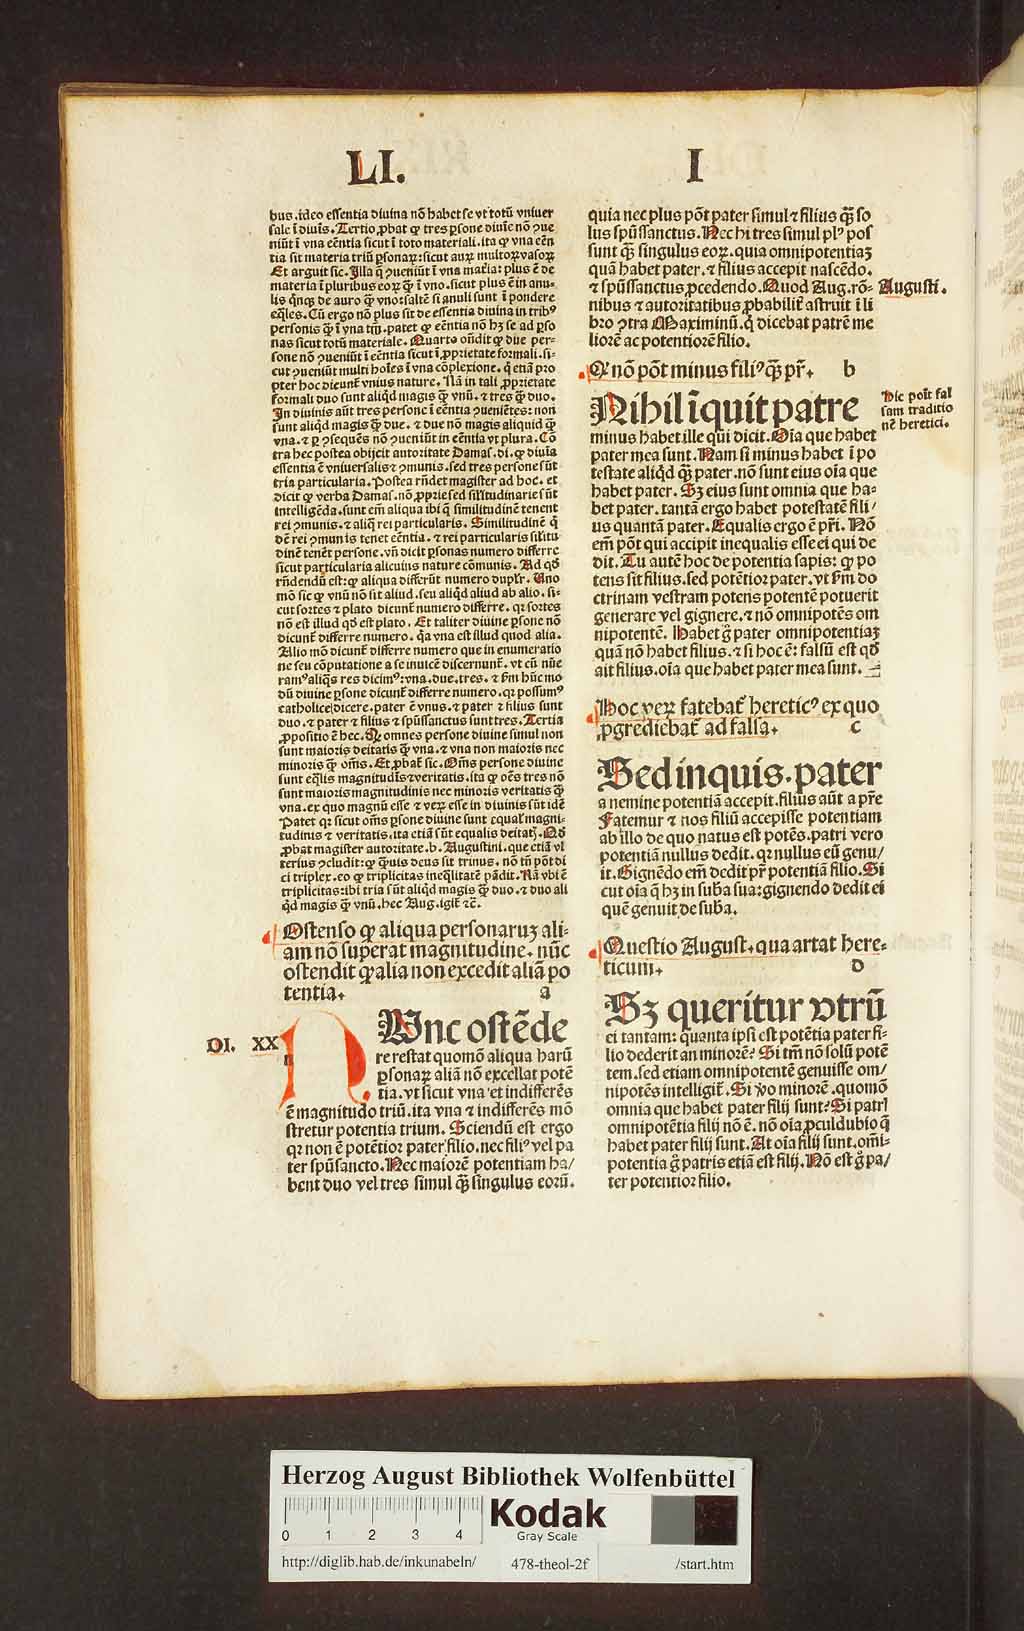 LI. I
bus .ideo essentia diuina nō habet se vt totū vniuer
sale ī diuīs. Tertio ꝓbat ꝙ tres ꝑsone diuīe nō ꝯue
niūt ī vna eēntia sicut ī toto materiali .ita ꝙ vna eēn
tia sit materia triū ꝑsonaꝝ: sicut auꝝ multoꝝ vasoꝝ
Et arguit sic. Illa ꝙ ꝯueniūt ī vna mat̄ia: plus ē de
materia ī pluribus eoꝝ ꝙ̄ ī vno .sicut plus ē in anu-
lis qͥnqꝫ de auro ꝙ̄ vno: saltē si anuli sunt ī pondere
eq̄les. Cū ergo nō plus sit de essentia diuina in tribꝰ
personis ꝙ̄ ī vna tm̄ .patet ꝙ eēntia nō hꝫ se ad ꝑso
nas sicut totū materiale. Quarto on̄dit ꝙ due per-
sone nō ꝯueniūt ī eēntia sicut ī ꝓprietate formali .si-
cut ꝯueniūt multi hoīes ī vna cōplexione. q̄ etiā pro
pter hoc dicunt̄ vnius nature. Nā in tali ꝓprietate
formali duo sunt aliqd magis ꝙ̄ vnū .⁊ tres ꝙ̄ duo.
In diuinis aūt tres persone ī eēntia ꝯueniētes: non
sunt aliqd magis ꝙ̄ due. ⁊ due nō magis aliquid ꝙ̄
vna. ⁊ ꝑ ꝯsequēs nō ꝯueniūt in eēntia vt plura. Cō
tra hec postea obijcit autoritate Damas. di. ꝙ diuīa
essentia ē vniuersalis ⁊ ꝯmunis .sed tres persone sūt
tria particularia. Postea rn̄det magister ad hoc. et
dicit ꝙ verba Damas. nō ꝓprie sed sil̄itudinarie sūt
intelligēda .sunt em̄ aliqua ibi q̄ similitudinē tenent
rei ꝯmunis .⁊ aliq̄ rei particularis. Similitudinē q̄
dē rei ꝯmunis tenet eēntia. ⁊ rei particularis sil̄itu
dinē tenēt persone .vn̄ dicit ꝑsonas numero differre
sicut particularia alicuius nature cōmunis. Ad qd̄
rn̄dendū est: ꝙ aliqua differūt numero dupl̄r. Uno
mō sic ꝙ vnū nō sit aliud .seu aliqd aliud ab alio. si-
cut sortes ⁊ plato dicunt̄ numero differre. qꝛ sortes
nō est illud qd̄ est plato. Et taliter diuine ꝑsone nō
dicunt̄ differre numero. qꝛ vna est illud quod alia.
Alio mō dicunt̄ differre numero que in enumeratio
ne seu cōputatione a se inuicē discernunt̄. vt cū nūe
ramꝰ aliqs res dicimꝰ: vna .due .tres. ⁊ ẜm hūc mo
dū diuine ꝑsone dicunt̄ differre numero. qꝛ possumꝰ
catholice dicere .pater ē vnus. ⁊ pater ⁊ filius sunt
duo .⁊ pater ⁊ filius ⁊ spūssanctus sunt tres. Tertia
ꝓpositio ē hec. ꝙ omnes persone diuine simul non
sunt maioris deitatis ꝙ̄ vna. ⁊ vna non maioris nec
minoris ꝙ̄ om̄s. Et ꝓbat̄ sic. Om̄s persone diuine
sunt eq̄lis magnitudīs ⁊ veritatis .ita ꝙ oēs tres nō
sunt maioris magnitudinis nec minoris veritatis ꝙ̄
vna .ex quo magnū esse ⁊ veꝝ esse in diuinis sūt idē
Patet qꝛ sicut om̄s ꝑsone diuine sunt equal̄ magni-
tudinis ⁊ veritatis .ita etiā sūt equalis deitatꝭ. Qd̄
ꝓbat magister autoritate .b. Augustini .que etiā vl
terius ꝯcludit: ꝙ q̄uis deus sit trinus. nō tn̄ pōt di
ci triplex .eo ꝙ triplicitas ineq̄litatē pādit. Nā vbi ē
triplicitas: ibi tria sūt aliqd magis ꝙ̄ duo .⁊ duo ali
qd magis ꝙ̄ vnū .hec Aug. igit̄ ⁊c̄.
Ostenso ꝙ aliqua personaruꝫ ali-
am nō superat magnitudine. nūc
ostendit ꝙ alia non excedit aliā po
tentia. a
DI. XX
Nnc ostēde
re restat quomō aliqua harū
ꝑsonaꝝ aliā nō excellat potē
tia .vt sicut vna et indifferēs
ē magnitudo triū .ita vna ⁊ indifferēs mō
stretur potentia trium. Sciendū est ergo
qꝛ non ē potētior pater filio .nec filiꝰ vel pa
ter spūsancto. Nec maiorē potentiam ha/
bent duo vel tres simul q̄ꝫ singulus eorū.
quia nec plus pōt pater simul ⁊ filius q̄ꝫ so
lus spūssanctus. Nec hi tres simul plꝰ pos
sunt q̄ꝫ singulus eoꝝ. quia omnipotentiaꝫ
quā habet pater .⁊ filius accepit nascēdo.
⁊ spūssanctus ꝓcedendo. Quod Aug. rō-
nibus ⁊ autoritatibus ꝓbabilit̄ astruit ī li
bro ꝯtra Maximinū. q̄ dicebat patrē me
liorē ac potentiorē filio.
Augusti.
Q nō pōt minus filiꝰ q̄ꝫ pr̄. b
Nihil īquit patre
minus habet ille qui dicit. Oīa que habet
pater mea sunt. Nam si minus habet ī po
testate aliqd q̄ꝫ pater .nō sunt eius oīa que
habet pater. Sꝫ eius sunt omnia que ha-
bet pater. tantā ergo habet potestatē fili/
us quantā pater. Equalis ergo ē pr̄i. Nō
em̄ pōt qui accipit inequalis esse ei qui de
dit. Tu autē hoc de potentia sapis: ꝙ po
tens sit filius .sed potētior pater. vt ẜm do
ctrinam vestram potens potentē potuerit
generare vel gignere .⁊ nō omnipotēs om
nipotentē. Habet gͦ pater omnipotentiaꝫ
quā nō habet filius .⁊ si hoc ē: falsū est qd̄
ait filius .oīa que habet pater mea sunt.
Hic poīt fal
sam traditio
nē heretici.
Hoc veꝝ fatebat̄ hereticꝰ ex quo
ꝓgrediebat̄ ad falsa. c
Sed inquis .pater
a nemine potentiā accepit .filius aūt a pr̄e
Fatemur ⁊ nos filiū accepisse potentiam
ab illo de quo natus est potēs .patri vero
potentiā nullus dedit. qꝛ nullus eū genu/
it. Gignēdo em̄ dedit pr̄ potentiā filio. Si
cut oīa q̄ hꝫ in suba sua: gignendo dedit ei
quē genuit de suba.
Questio August. qua artat here-
ticum. d
Sꝫ queritur vtrū
ei tantam: quanta ipsi est potētia pater fi-
lio dederit an minorē? Si tm̄ nō solū potē
tem .sed etiam omnipotentē genuisse om/
nipotēs intelligit̄. Si v̊o minorē .quomō
omnia que habet pater filij sunt? Si patrꝭ
omnipotētia filij nō ē. nō oīa ꝓculdubio q̄
habet pater filij sunt. At oīa filij sunt. om̄i-
potentia gͦ patris etiā est filij. Nō est gͦ pa/
ter potentior filio.
Herzog August Bibliothek Wolfenbüttel
0 1 2 3 4
Kodak
Gray Scale
http://diglib.hab.de/inkunabeln/ 478-theol-2f /start.htm